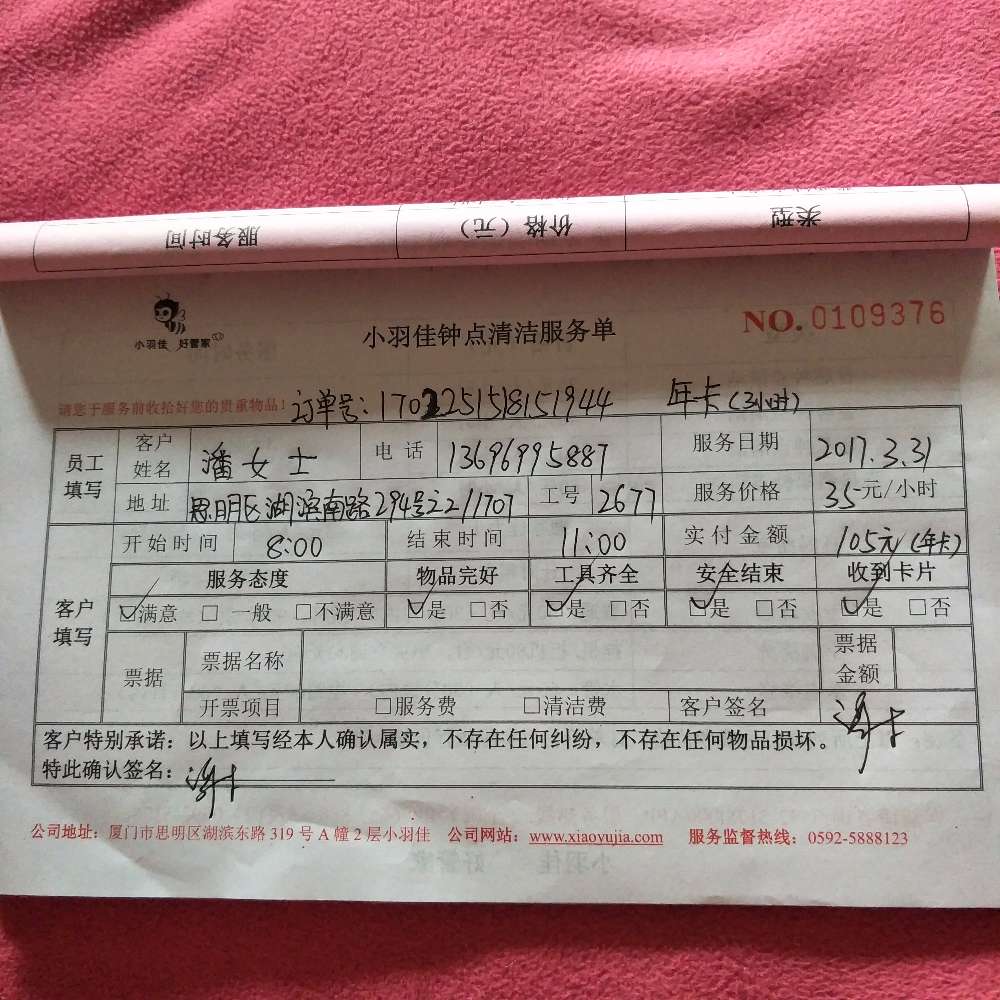 服务时间 价格（元） 类型
小羽佳 好管家
小羽佳钟点清洁服务单
NO.0109376
请您于服务前收拾好您的贵重物品！ 订单号：1702251518151944 年卡（3小时）
员工填写 客户姓名 潘女士 电话 13696995887 服务日期 2017.3.31
地址 思明区湖滨南路294号之2/1707 工号 2677 服务价格 35元/小时
客户填写 开始时间 8:00 结束时间 11:00 实付金额 105元（年卡）
服务态度 物品完好 工具齐全 安全结束 收到卡片
☑满意 □一般 □不满意 ☑是 □否 ☑是 □否 ☑是 □否 ☑是 □否
票据 票据名称 票据金额
开票项目 □服务费 □清洁费 客户签名
客户特别承诺：以上填写经本人确认属实，不存在任何纠纷，不存在任何物品损坏。
特此确认签名：
公司地址：厦门市思明区湖滨东路319号A幢2层小羽佳 公司网站：www.xiaoyujia.com 服务监督热线：0592-5888123